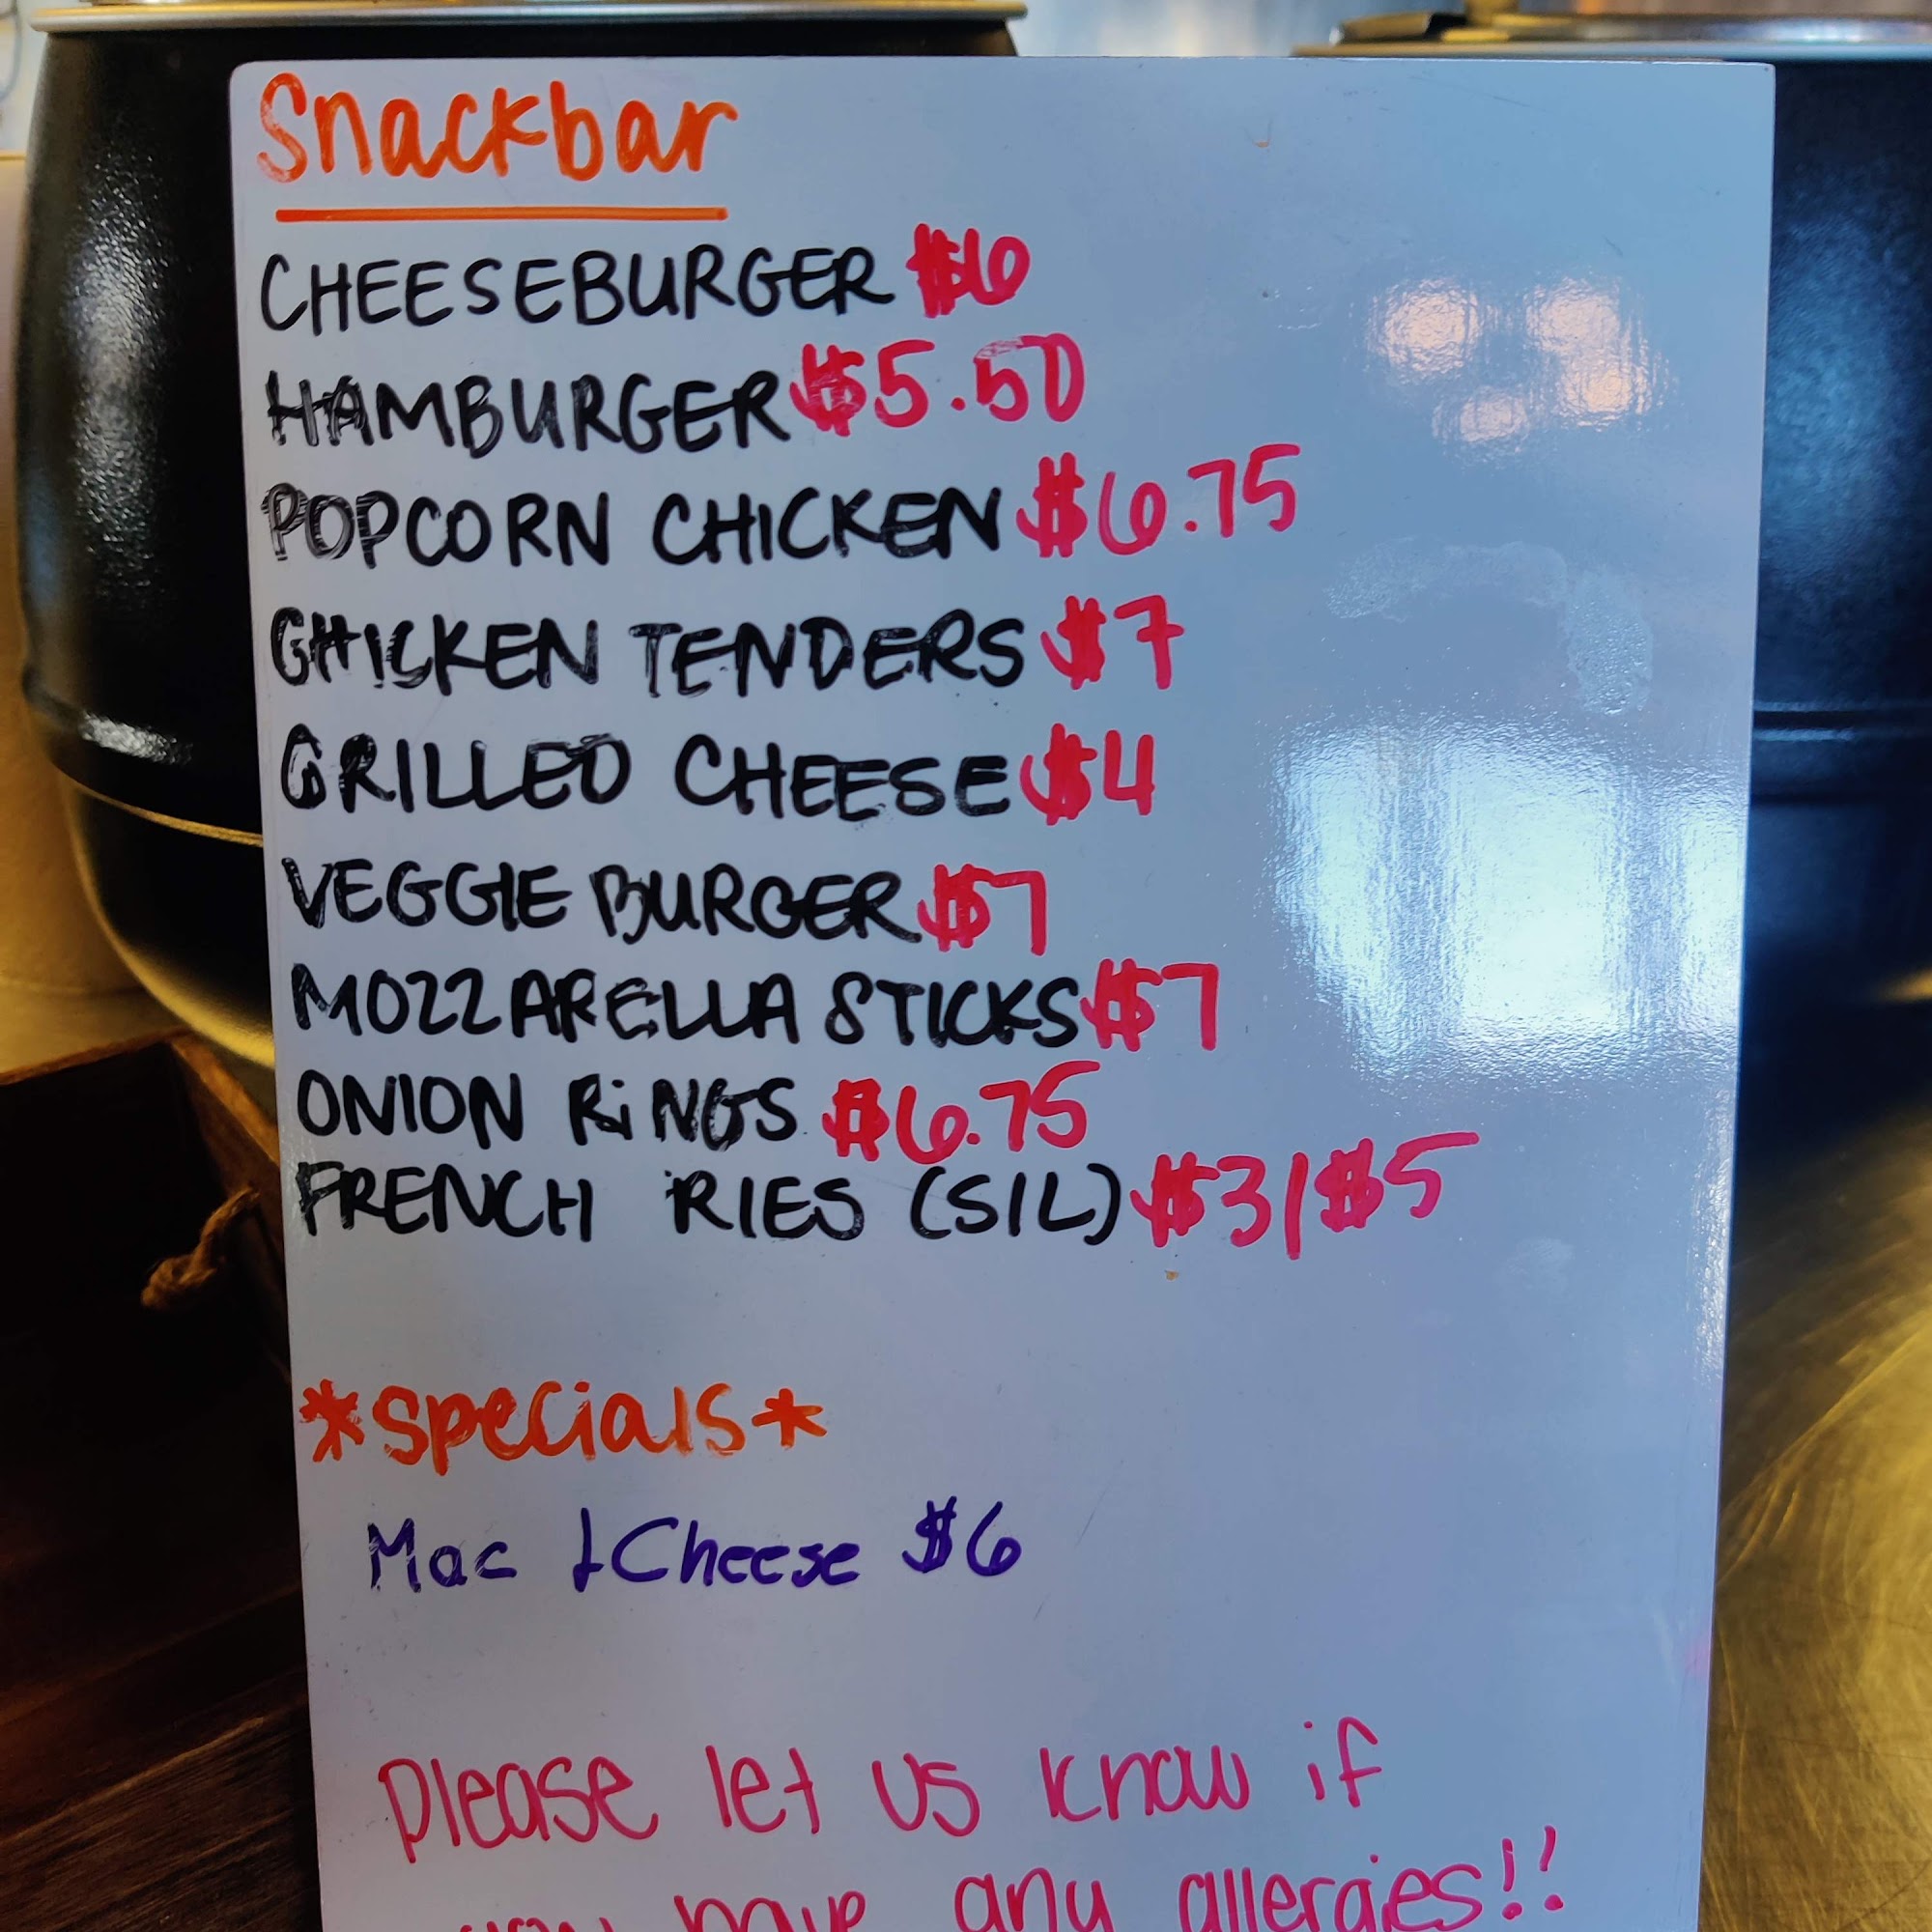 Snackbar
CHEESEBURGER $6
HAMBURGER $5.50
POPCORN CHICKEN $6.75
CHICKEN TENDERS $7
GRILLED CHEESE $4
VEGGIE BURGER $7
MOZZARELLA STICKS $7
ONION RiNGS $6.75
FRENCH RIES (S/L) $3/$5
*Specials*
Mac & Cheese $6
Please let us know if
you have any allergies!!